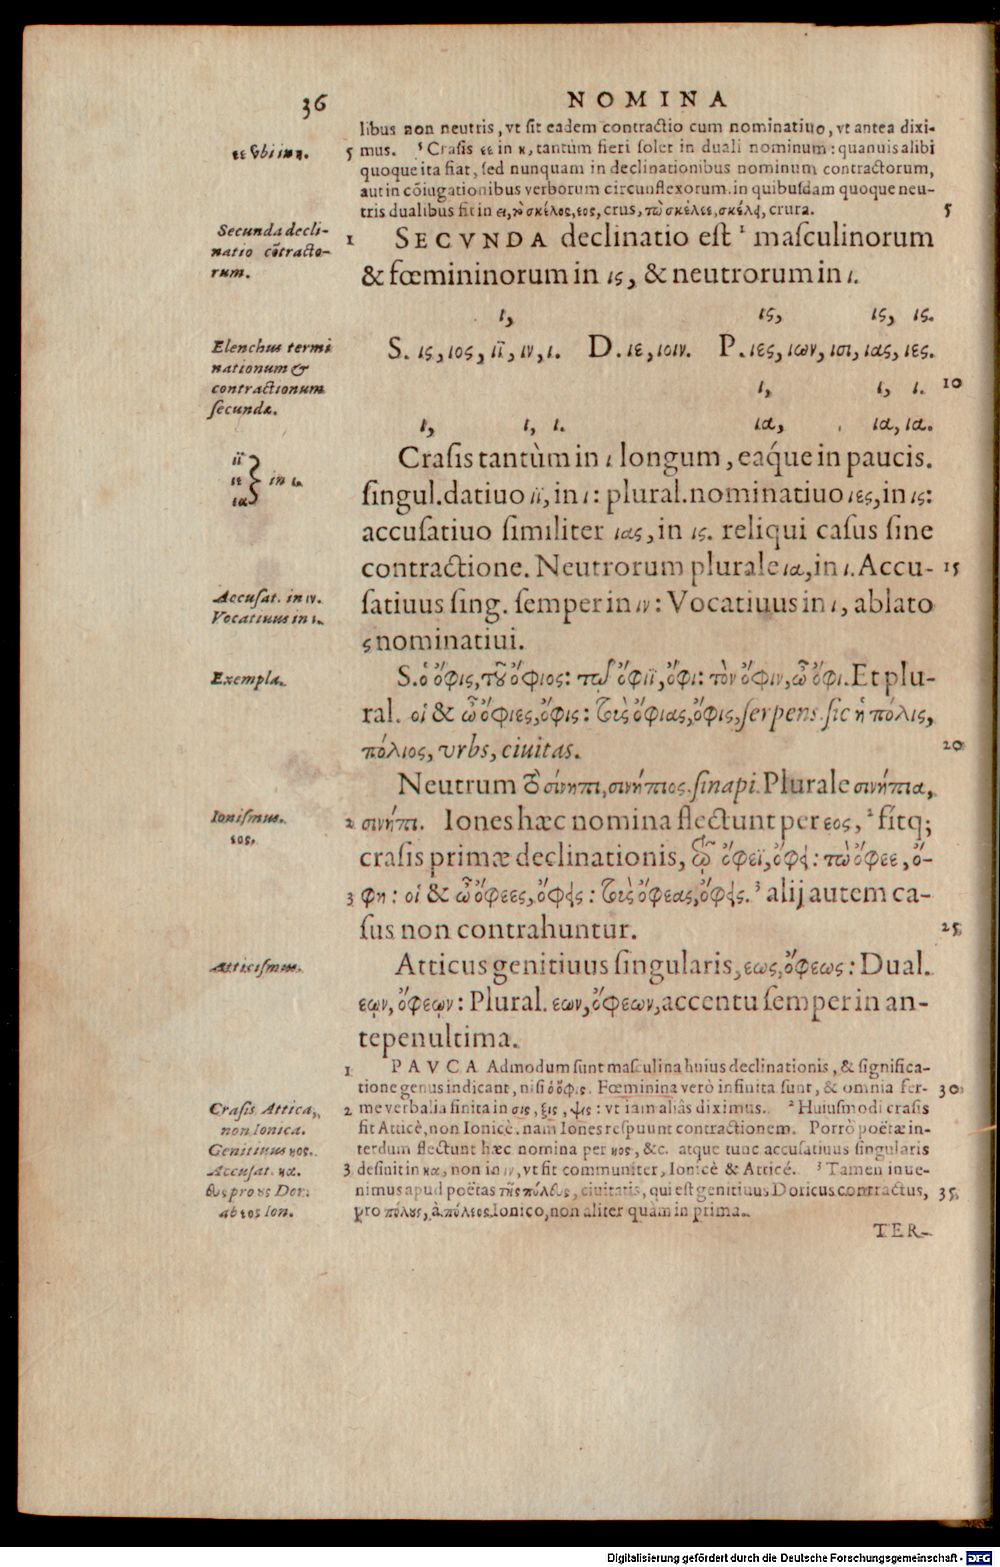 36
NOMINA
libus non neutris, vt ſit eadem contractio cum nominatiuo, vt antea dixi-
εε vbi in η.
5 mus. ⁵ Craſis εε in η, tantùm fieri ſolet in duali nominum: quanuis alibi
quoque ita fiat, ſed nunquam in declinationibus nominum contractorum,
aut in cõiugationibus verborum circunflexorum. in quibuſdam quoque neu-
tris dualibus fit in ει, τὸ σκέλος, εος, crus, τὼ σκέλεε, σκέλει, crura. 5
Secunda decli-
natio cõtracto-
rum.
1 SECVNDA declinatio eſt ¹ maſculinorum
& fœmininorum in ις, & neutrorum in ι.
ι, ις, ις, ις.
Elenchus termi
nationum &
contractionum
ſecundæ.
S. ις, ιος, ιϊ, ιν, ι. D. ιε, ιοιν. P. ιες, ιων, ισι, ιας, ιες.
ι, ι, ι. 10
ι, ι, ι. ια, ια, ια.
ιϊ
ιε in ι.
ια
Craſis tantùm in ι longum, eáque in paucis.
ſingul. datiuo ιϊ, in ι: plural. nominatiuo ιες, in ις:
accuſatiuo ſimiliter ιας, in ις. reliqui caſus ſine
contractione. Neutrorum plurale ια, in ι. Accu- 15
Accuſat. in ιν.
Vocatiuus in ι.
ſatiuus ſing. ſemper in ιν: Vocatiuus in ι, ablato
ς nominatiui.
Exempla.
S. ὁ ὄφις, τοῦ ὄφιος: τῷ ὄφιϊ, ὄφι: τὸν ὄφιν, ὦ ὄφι. Et plu-
ral. οἱ & ὦ ὄφιες, ὄφις: τοὺς ὄφιας, ὄφις, ſerpens. ſic ἡ πόλις,
πόλιος, vrbs, ciuitas. 20
Neutrum τὸ σίνηπι, σινήπιος. ſinapi. Plurale σινήπια,
Ioniſmus.
εος.
2 σινήπι. Iones hæc nomina flectunt per εος, ² fítq;
craſis primæ declinationis, τῷ ὄφεϊ, ὄφει: τὼ ὄφεε, ὄ-
3 φη: οἱ & ὦ ὄφεες, ὄφεις: τοὺς ὄφεας, ὄφεις. ³ alij autem ca-
ſus non contrahuntur. 25
Atticiſmus.
Atticus genitiuus ſingularis, εως, ὄφεως: Dual.
εῳν, ὄφεῳν: Plural. εων, ὄφεων, accentu ſemper in an-
tepenultima.
1 PAVCA Admodum ſunt maſculina huius declinationis, & ſignifica-
tione genus indicant, niſi ὁ ὄφις. Fœminina verò infinita ſunt, & omnia fer- 30
Craſis Attica,
non Ionica.
2 me verbalia finita in σις, ξις, ψις: vt iam aliàs diximus. ² Huiuſmodi craſis
fit Atticè, non Ionicè. nam Iones reſpuunt contractionem. Porrò poëtæ in-
Genitiuus ηος.
terdum flectunt hæc nomina per ηος, &c. atque tunc accuſatiuus ſingularis
Accuſat. ηα.
3 deſinit in ηα, non in ιν, vt fit communiter, Ionicè & Atticè. ³ Tamen inue-
ευς pro ους Dor.
ab εος Ion.
nimus apud poëtas τῆς πόλευς, ciuitatis, qui eſt genitiuus Doricus contractus, 35
pro πόλους, à πόλεος Ionico, non aliter quàm in prima.
TER-
Digitalisierung gefördert durch die Deutsche Forschungsgemeinschaft - DFG